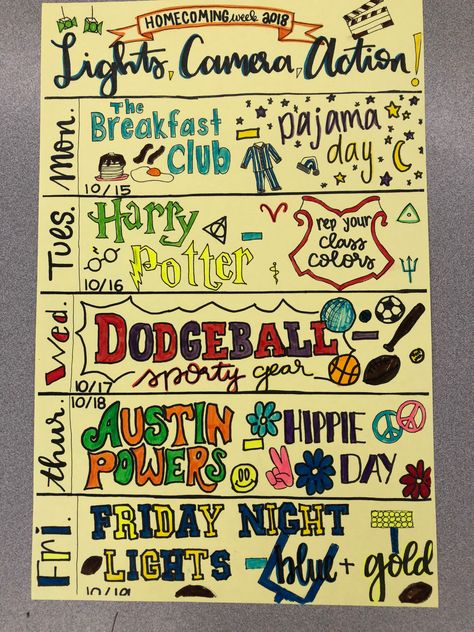 HOMECOMING week 2018
Lights, Camera, Action!
Mon.
The
Breakfast
Club
- pajama
day
10/15
Tues.
Harry
Potter
- rep your
class
colors
10/16
Wed.
DODGEBALL -
sporty gear
10/17
10/18
thur.
AUSTIN
POWERS
- HIPPIE
DAY
Fri.
FRIDAY NIGHT
LIGHTS - blue + gold
10/19